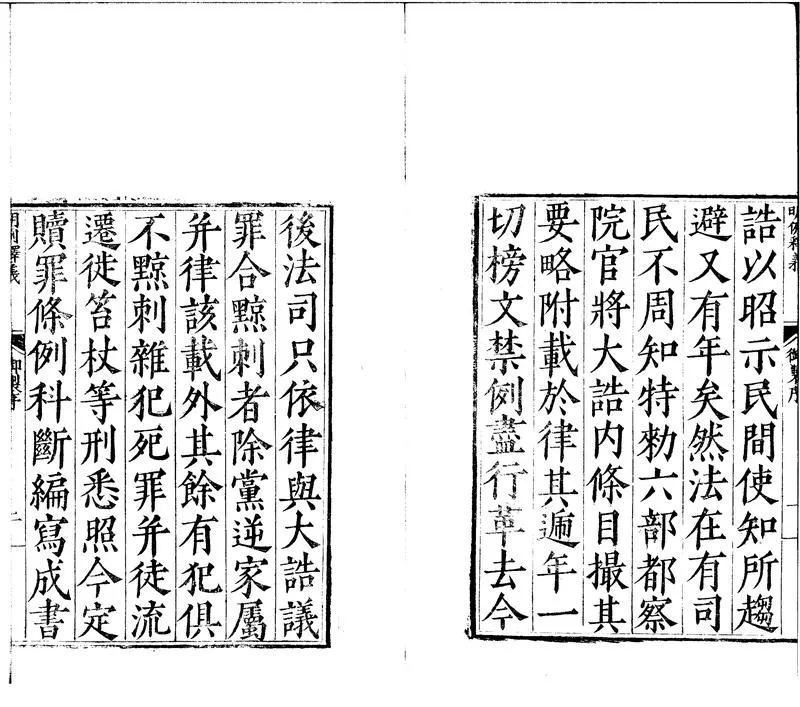 誥以昭示民間使知所趨
避又有年矣然法在有司
民不周知特勑六部都察
院官將大誥内條目撮其
要略附載於律其遞年一
切榜文禁例盡行革去今
後法司只依律與大誥議
罪合黥刺者除黨逆家屬
并律該載外其餘有犯俱
不黥刺雜犯死罪并徒流
遷徙笞杖等刑悉照今定
贖罪條例科斷編寫成書
釋義
御製序
二